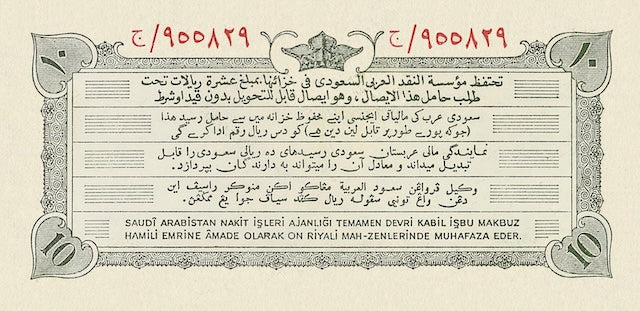 ج/٩٥٥٨٢٩ ج/٩٥٥٨٢٩
١٠ ١٠
تحتفظ مؤسسة النقد العربى السعودى فى خزائنها، بمبلغ عشرة ريالات تحت
طلب حامل هذا الايصال، وهو ايصال قابل للتحويل بدون قيد اوشرط
سعودی عرب کی مالیاتی ایجنسی اپنے محفوظ خزانہ میں سے حامل رسید ھذا
(جوکہ پورے طور پر قابل لین دین ھے) کو دس ریال رقم ادا کرے گی
نمایندگی مالی عربستان سعودی رسیدهای ده ریالی سعودی را قابل
تبدیل میداند و معادل آن را میتواند به دارندگان بپردازد.
وكيل قرواڠن سعود العربية مڠاكو اكن منوكر راسيف اين
دڠن واڠ توني سڤوله ريال كند سياڤ جوا يڠ
SAUDİ ARABİSTAN NAKİT İŞLERİ AJANLIĞI TEMAMEN DEVRİ KABİL İŞBU MAKBUZ
HAMİLİ EMRİNE ÂMADE OLARAK ON RİYALİ MAH-ZENLERİNDE MUHAFAZA EDER.
10 10